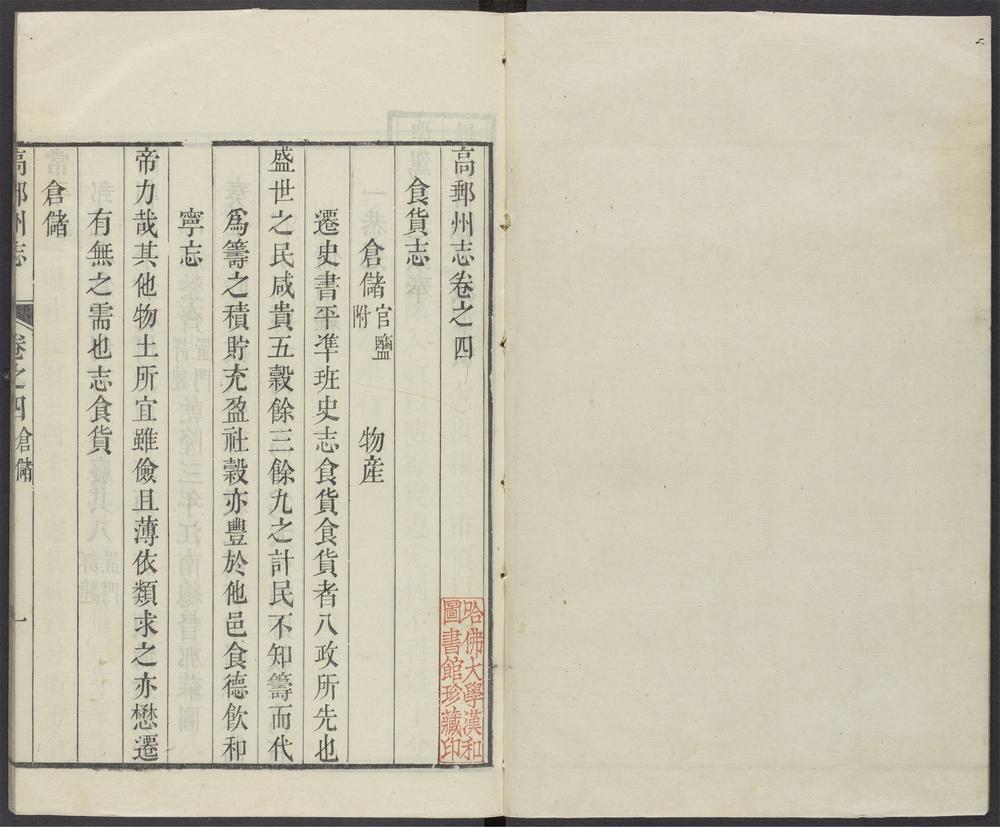 高郵州志卷之四
食貨志
倉儲官鹽附 物産
遷史書平準班史志食貨食貨者八政所先也
盛世之民咸貴五穀餘三餘九之計民不知籌而代
爲籌之積貯充盈社穀亦豐於他邑食德飲和
寧忘
帝力哉其他物土所宜雖儉且薄依類求之亦懋遷
有無之需也志食貨
倉儲
高郵州志 卷之四倉儲 一
哈佛大學漢和
圖書館珍藏印